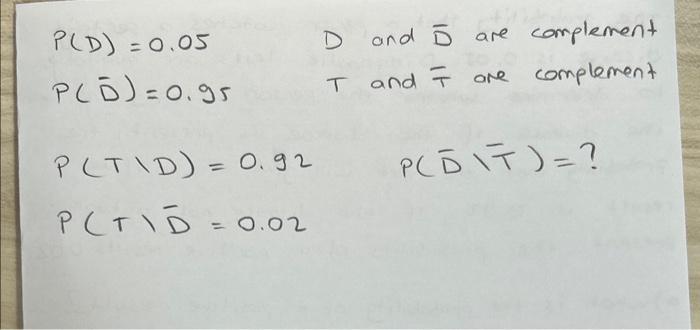 P(D) = 0.05
P(D̄) = 0.95
D and D̄ are complement
T and T̄ are complement
P(T\D) = 0.92
P(D̄\T̄) = ?
P(T\D̄ = 0.02